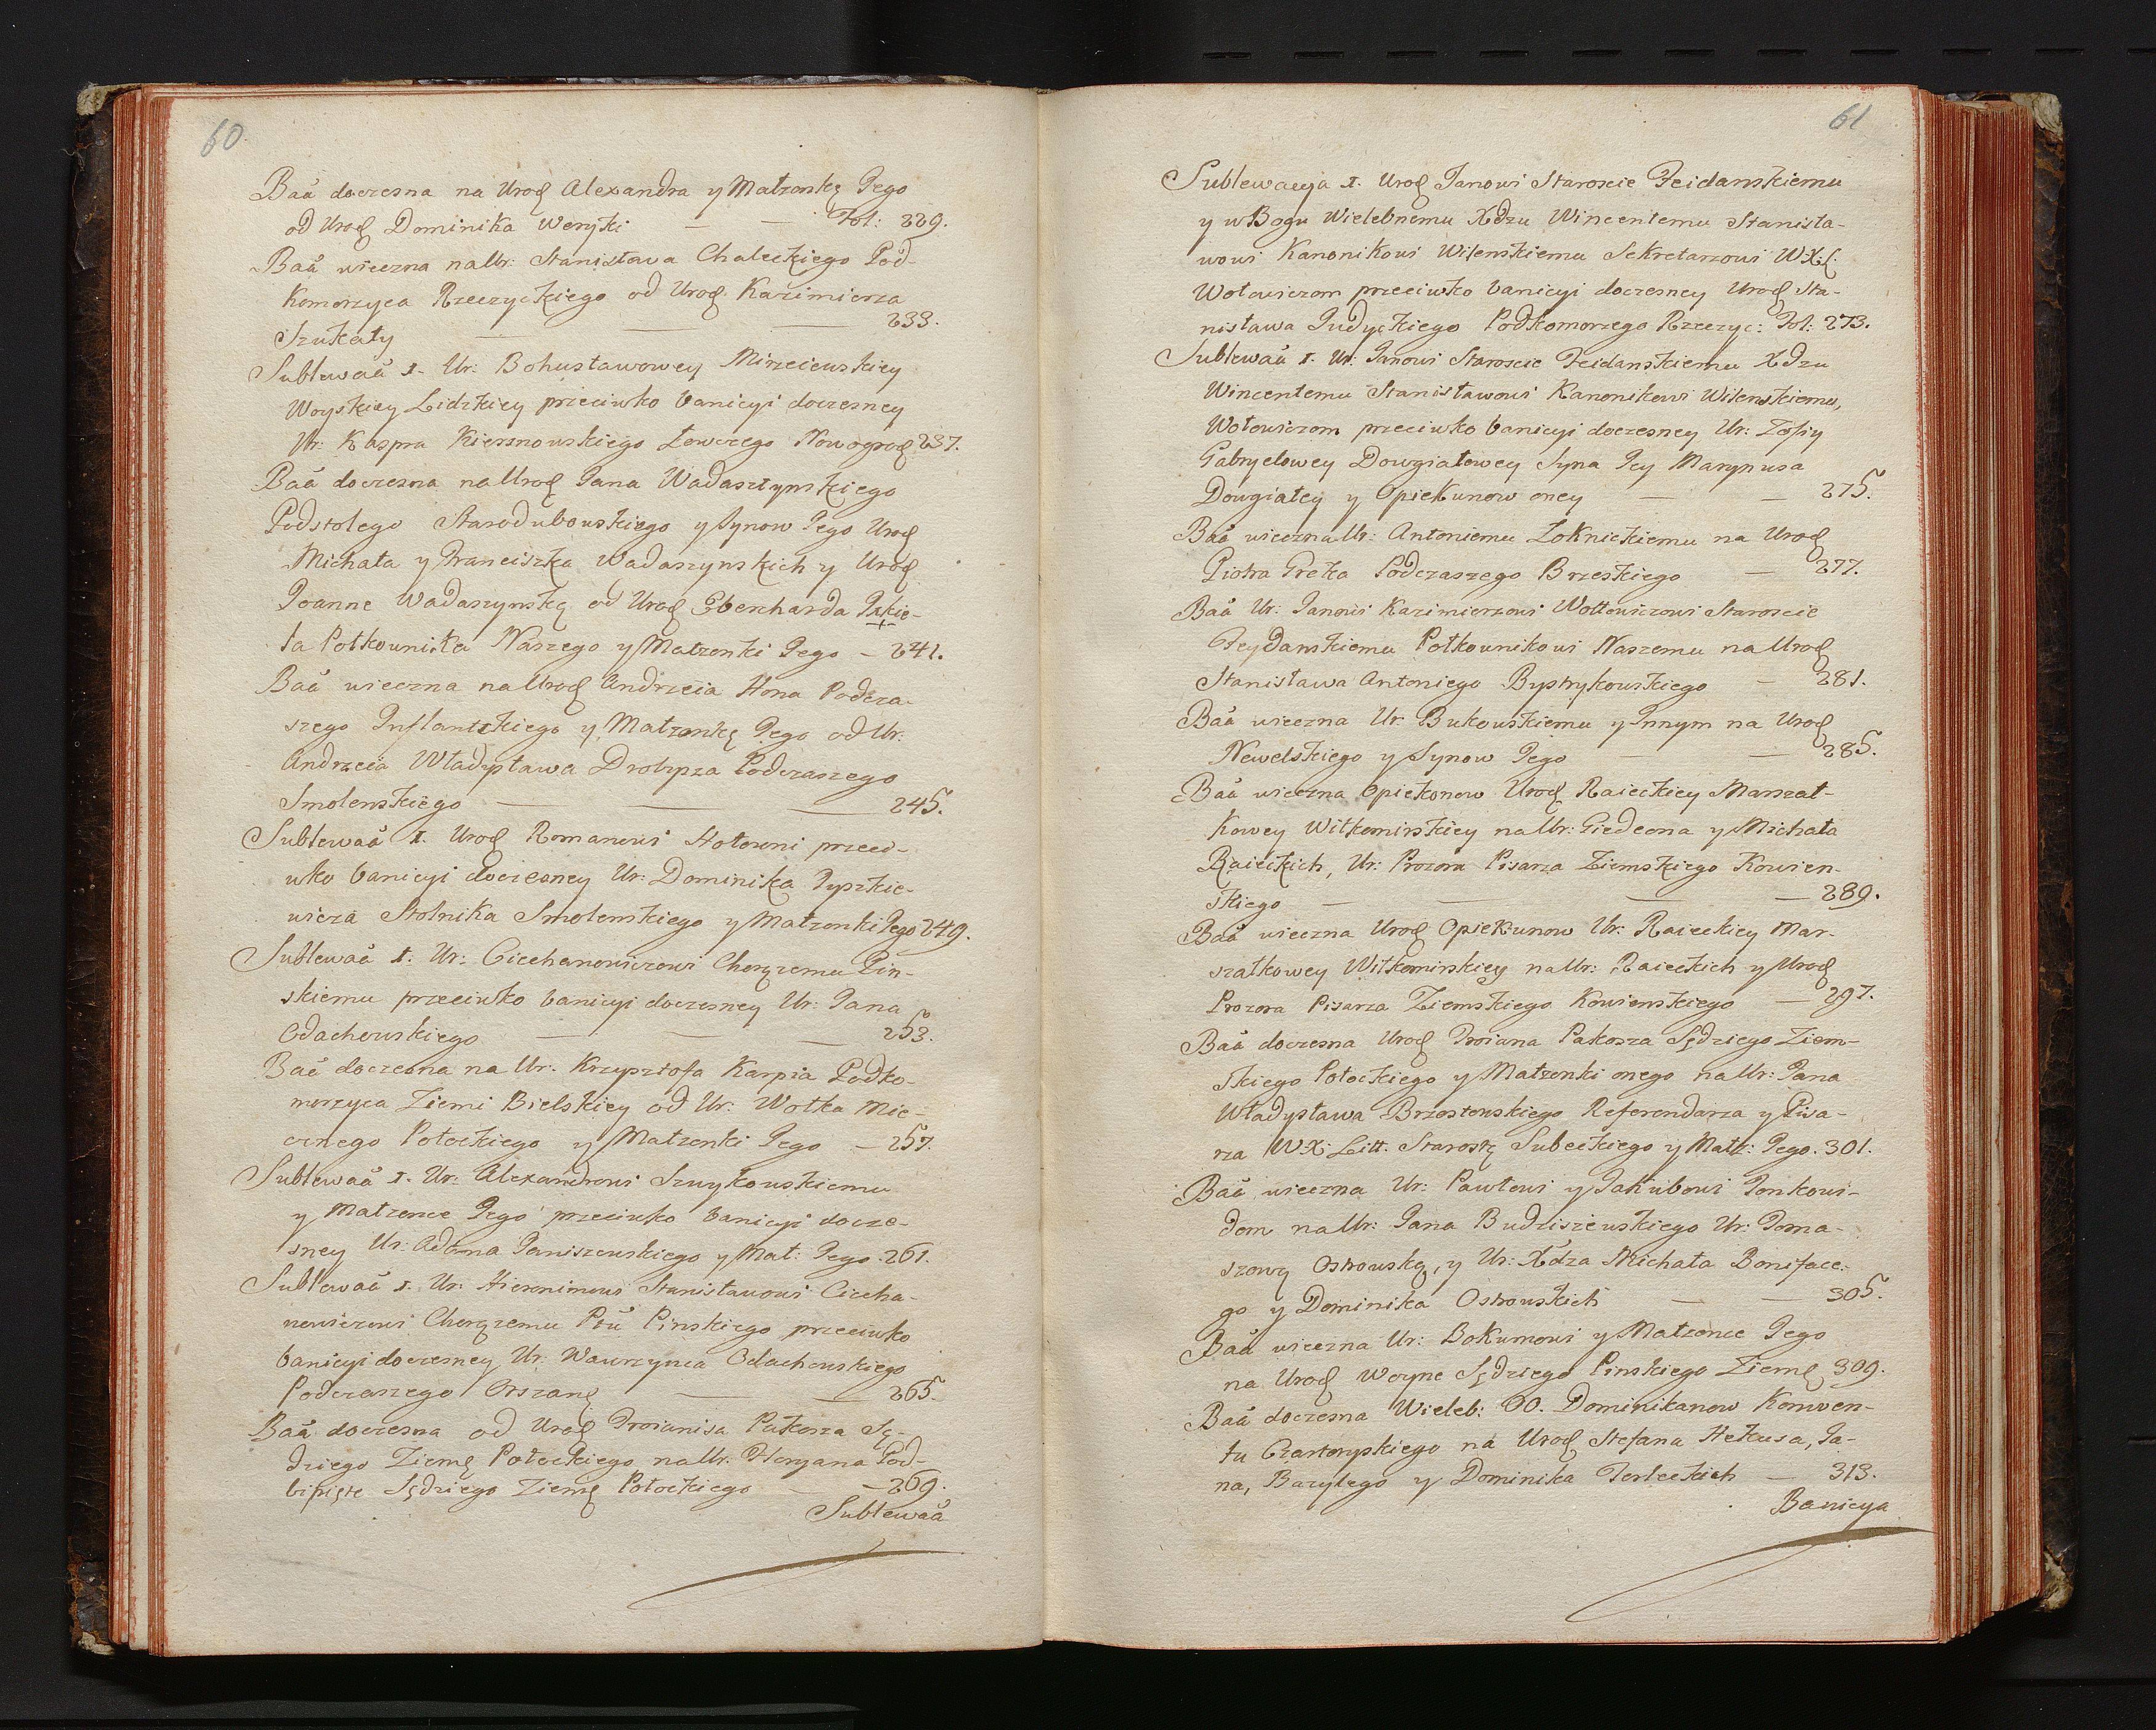 60
Baã doczesna na Urod Alexandra y Małżonkę Jego
od Urod Dominika Weryki — — Fol: 229.
Baã wieczna na Ur: Stanisława Chaleckiego Pod-
Komorzyca Rzeczyckiego od Urod Kazimierza
Szukały — — — 233.
Sublewaã I. Ur: Bohusławowey Mirzeiewskiey
Woyskiey Lidzkiey przeciwko banicyi doczesney
Ur: Kaspra Kiersnowskiego Łowczego Nowogrod 237.
Baã doczesna na Urod Jana Wadaszynskiego
Podstolego Starodubowskiego y Synow Jego Urod
Michała y Franciszka Wadaszynskich y Urod
Joanne Wadaszynską od Urod Eberharda
ta Połkownika Naszego y Małżonki Jego — 241.
Baã wieczna na Urod Andrzeia Hona Podcza-
szego Inflantskiego y Małżonkę Jego od Ur:
Andrzeia Władysława Drobysza Podczaszego
Smolenskiego — — — 245.
Sublewaã I. Urod Romanowi Hołowni przeci-
wko banicyi doczesney Ur: Dominika Tyszkie-
wicza Stolnika Smolenskiego y Małżonki Jego 249.
Sublewaã I. Ur: Ciechanowiczowi Chorążemu Pin-
skiemu przeciwko banicyi doczesney Ur: Jana
Odachowskiego — — — 253.
Baã doczesna na Ur: Krzysztofa Karpia Podko-
morzyca Ziemi Bielskiey od Ur: Wołka Mie-
cznego Połockiego y Małżonki Jego — 257.
Sublewaã I. Ur: Alexandrowi Szuykowskiemu
y Małzonce Jego przeciwko banicyi docze-
sney Ur: Adama Janiszewskiego y Mał: Jego. 261.
Sublewaã I. Ur: Hieronimowi Stanisławowi Ciecha-
nowiczowi Chorążemu Ptu Pinskiego przeciwko
banicyi doczesney Ur: Wawrzynca Odachowskiego
Podczaszego Orszanſ — — 265.
Baã doczesna od Urod Troianisa Pakosza Sę-
dziego Ziemſ Połockiego na Ur: Floryana Pod-
bipięte Sędziego Ziemſ Połockiego — — 269.
Sublewaã
61
Sublewacya I. Urod Janowi Staroscie Feidanskiemu
y w Bogu Wielebnemu Xdzu Wincentemu Stanisła-
wowi Kanonikowi Wilenskiemu Sekretarzowi W.X.L.
Wołowiczom przeciwko banicyi doczesney Urod Sta-
nisława Judyckiego Podkomorzego Rzeczyc: Fol: 273.
Sublewaã I. Ur: Janowi Staroscie Feidanskiemu Xdzu
Wincentemu Stanisławowi Kanonikowi Wilenskiemu,
Wołowiczom przeciwko banicyi doczesney Ur: Zofiy
Gabryelowey Dowgiałowey Syna Jey Marynusa
Dowgiałey y Opiekunow oney — — 275.
Baã wieczna Ur: Antoniemu Łoknickiemu na Urod
Piotra Greka Podczaszego Brzeskiego — 277.
Baã Ur: Janowi Kazimierzowi Wołłowiczowi Staroscie
Feydanskiemu Połkownikowi Naszemu na Urod
Stanisława Antoniego Bystrykowskiego — 281.
Baã wieczna Ur: Bukowskiemu y Innym na Urod
Newelskiego y Synow Jego — — 285.
Baã wieczna Opiekonow Urod Raieckiey Marszał-
Kowey Wiłkomirskiey na Ur: Giedeona y Michała
Raieckich, Ur: Prozora Pisarza Ziemskiego Kowien-
skiego — — — — 289.
Baã wieczna Urod Opiekunow Ur: Raieckiey Mar-
szałkowey Wiłkomirskiey na Ur: Raieckich y Urod
Prozora Pisarza Ziemskiego Kowienskiego — 297.
Baã doczesna Urod Troiana Pakosza Sędziego Ziem-
skiego Połockiego y Małżonki onego na Ur: Jana
Władysława Brzostowskiego Referendarza y Pisa-
rza W.X. Litt. Starostę Subockiego y Małż: Jego. 301.
Baã wieczna Ur: Pawłowi y Jakubowi Jonkowi-
dom na Ur: Jana Budziszewskiego Ur: Toma-
szową Ostrowską, y Ur: Xdza Michała Boniface-
go y Dominika Ostrowskich — — 305.
Baã wieczna Ur: Bokumowi y Małzonce Jego
na Urod Woyne Sędziego Pinskiego Ziemſ 309.
Baã doczesna Wieleb: OO. Dominikanow Konwen-
tu Czartoryskiego na Urod Stefana Hekusa, Ja-
na, Bazylego y Dominika Terleckich — 313.
Banicya